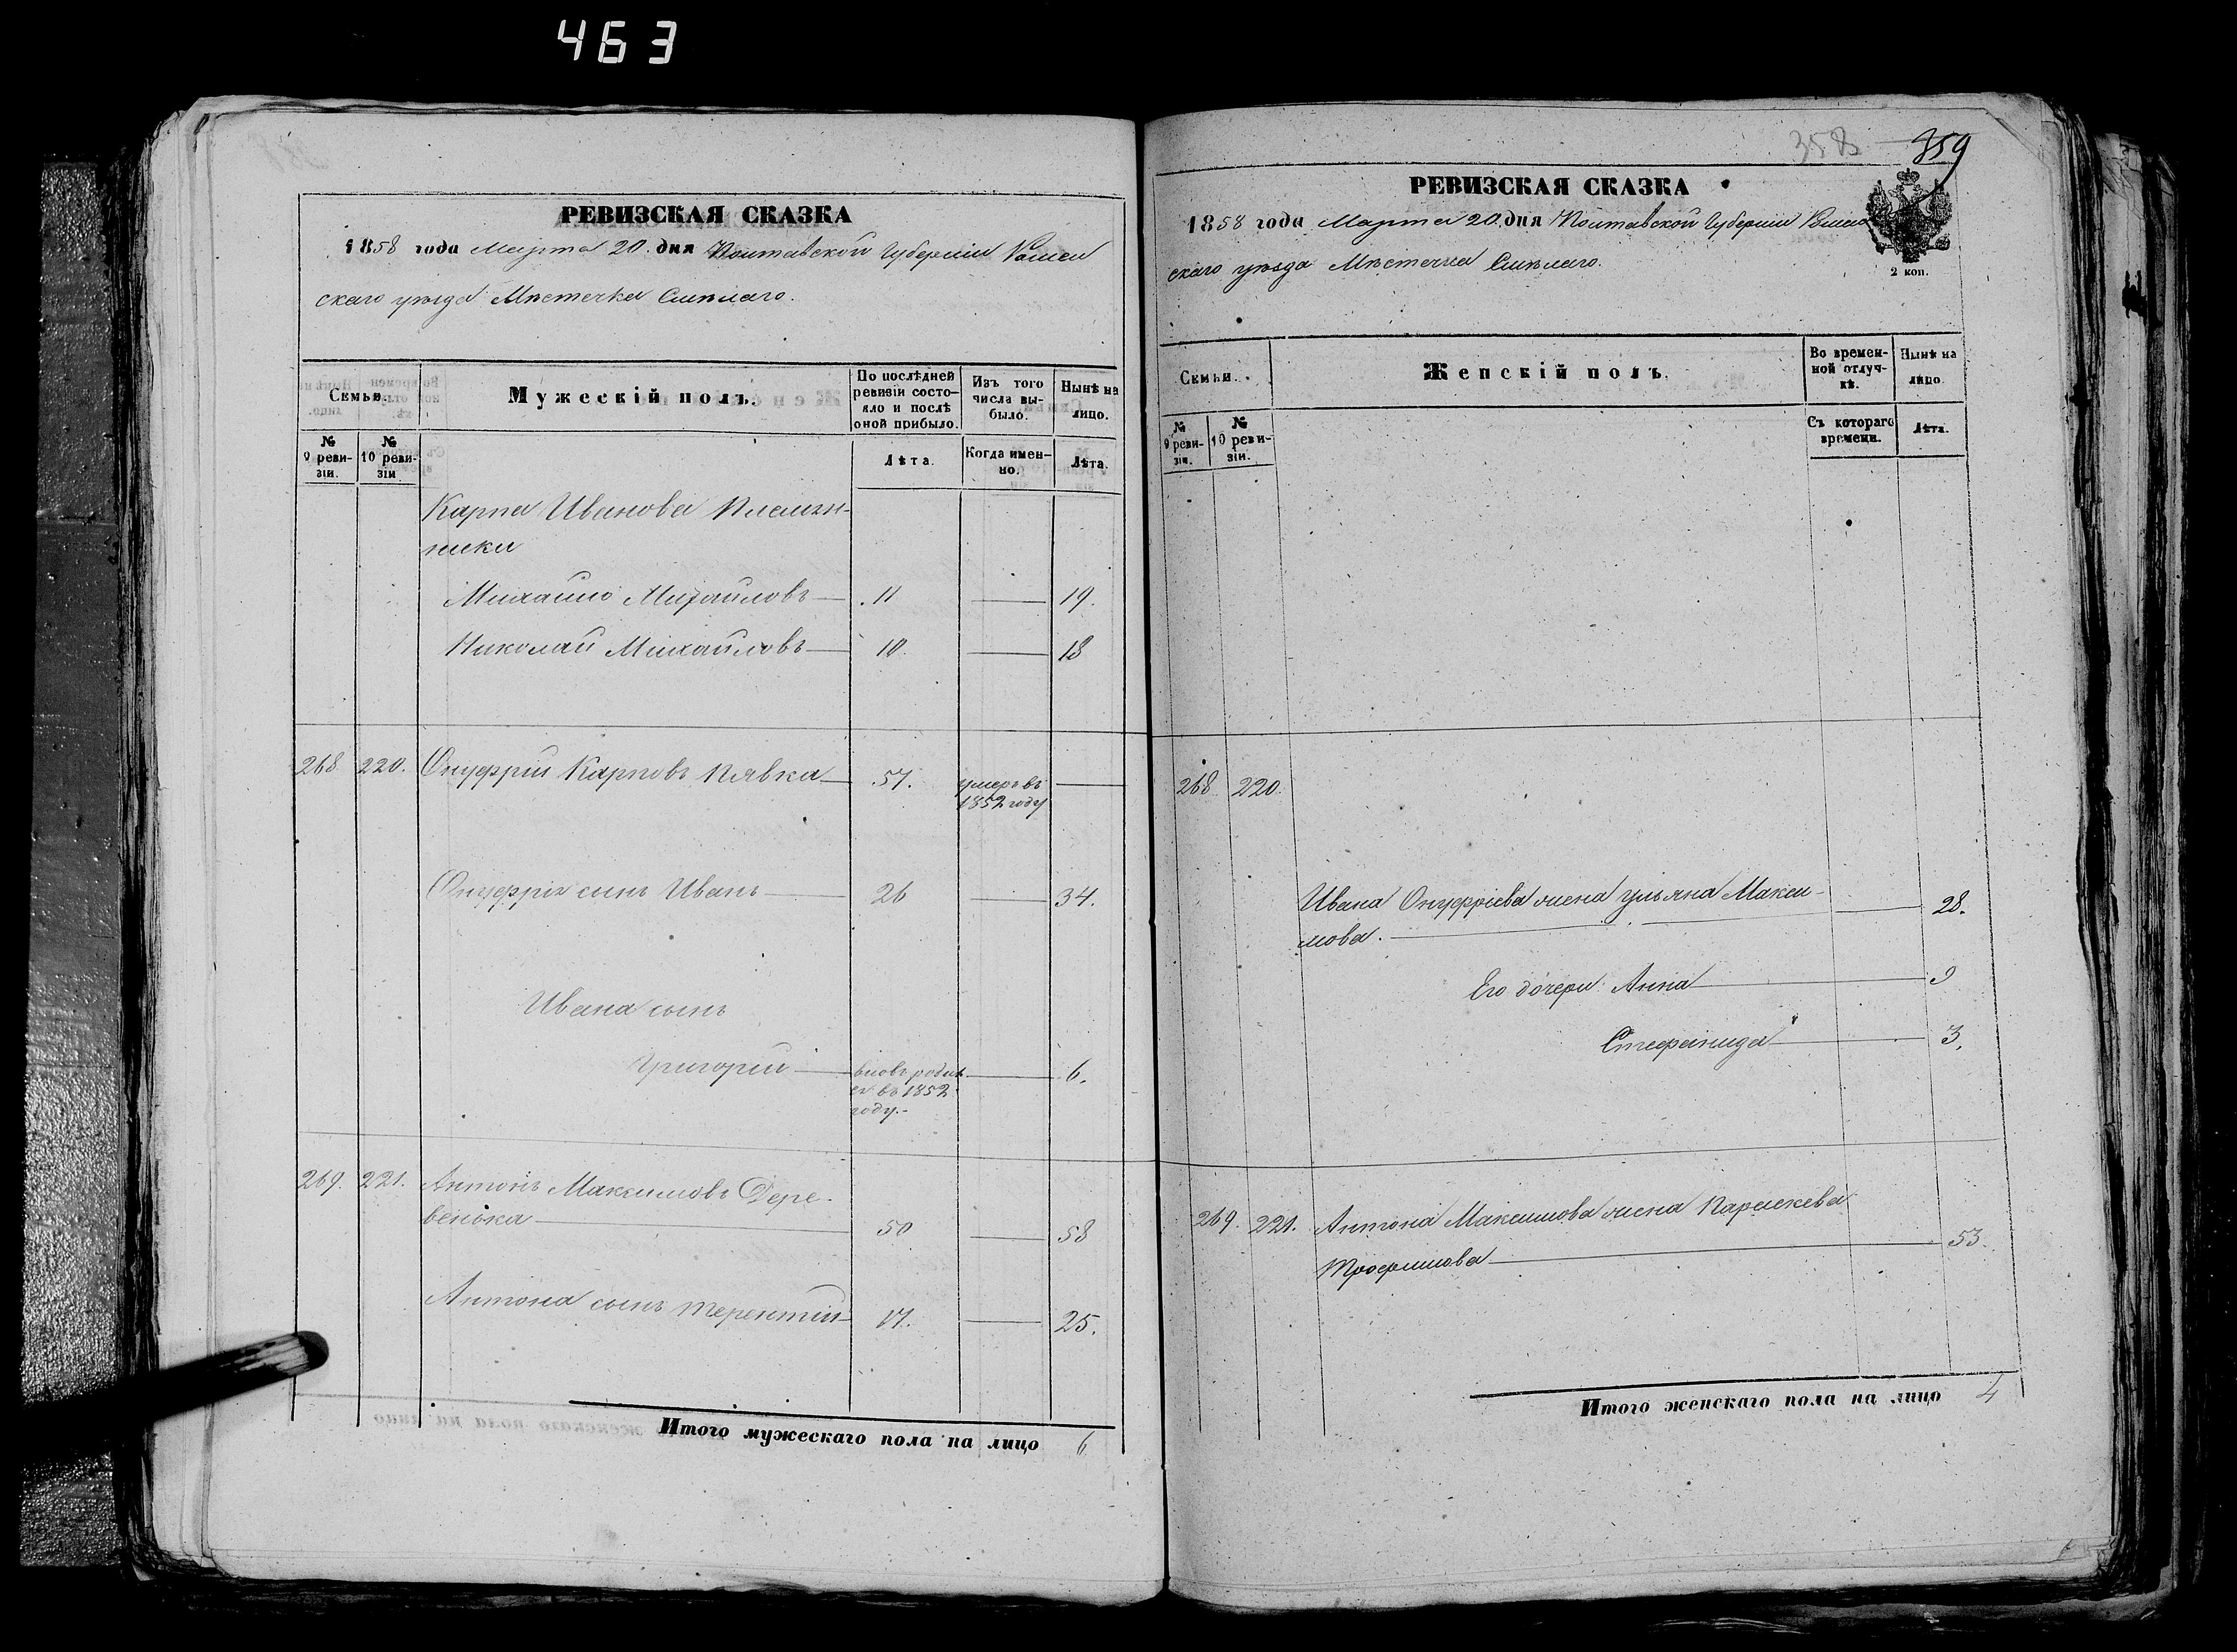 463
РЕВИЗСКАЯ СКАЗКА
1858 года Марта 20. дня Полтавской Губерніи Ромен
скаго уѣзда Мѣстечка Смѣлаго.
Семьи.
Мужескій полъ.
По послѣдней ревизіи состояло и послѣ оной прибыло.
Изъ того числа выбыло.
Нынѣ на лицо.
№ 9 ревизіи.
№ 10 ревизіи
Лѣта.
Когда именно.
Лѣта.
Карпа Иванова Племян-
ники
Михайло Михайловъ 11 19.
Николай Михайловъ 10 18
268 220. Онуфрій Карповъ Пявка 57. умеръ въ
1852 году
Онуфрія сынъ Иванъ 26 34.
Ивана сынъ
Григорій вновь родил 6.
ся въ 1852
году.
269. 221. Антонъ Максимовъ Дере-
венька 50 58
Антона сынъ Терентій 17. 25.
Итого мужескаго пола на лицо 6
358 359
РЕВИЗСКАЯ СКАЗКА
1858 года Марта 20. дня Полтавской Губерніи Ромен
скаго уѣзда Мѣстечка Смѣлаго.
2 коп.
Семьи.
Женскій полъ.
Во временной отлучкѣ.
Нынѣ на лицо.
№ 9 ревизіи.
№ 10 ревизіи.
Съ котораго времени.
Лѣта.
268 220.
Ивана Онуфріева жена Ульяна Макси- 28.
мова.
Его дочери: Анна 9
Стефанида 3.
269. 221. Антона Максимова жена Параскева
Трофимова 53.
Итого женскаго пола на лицо 4